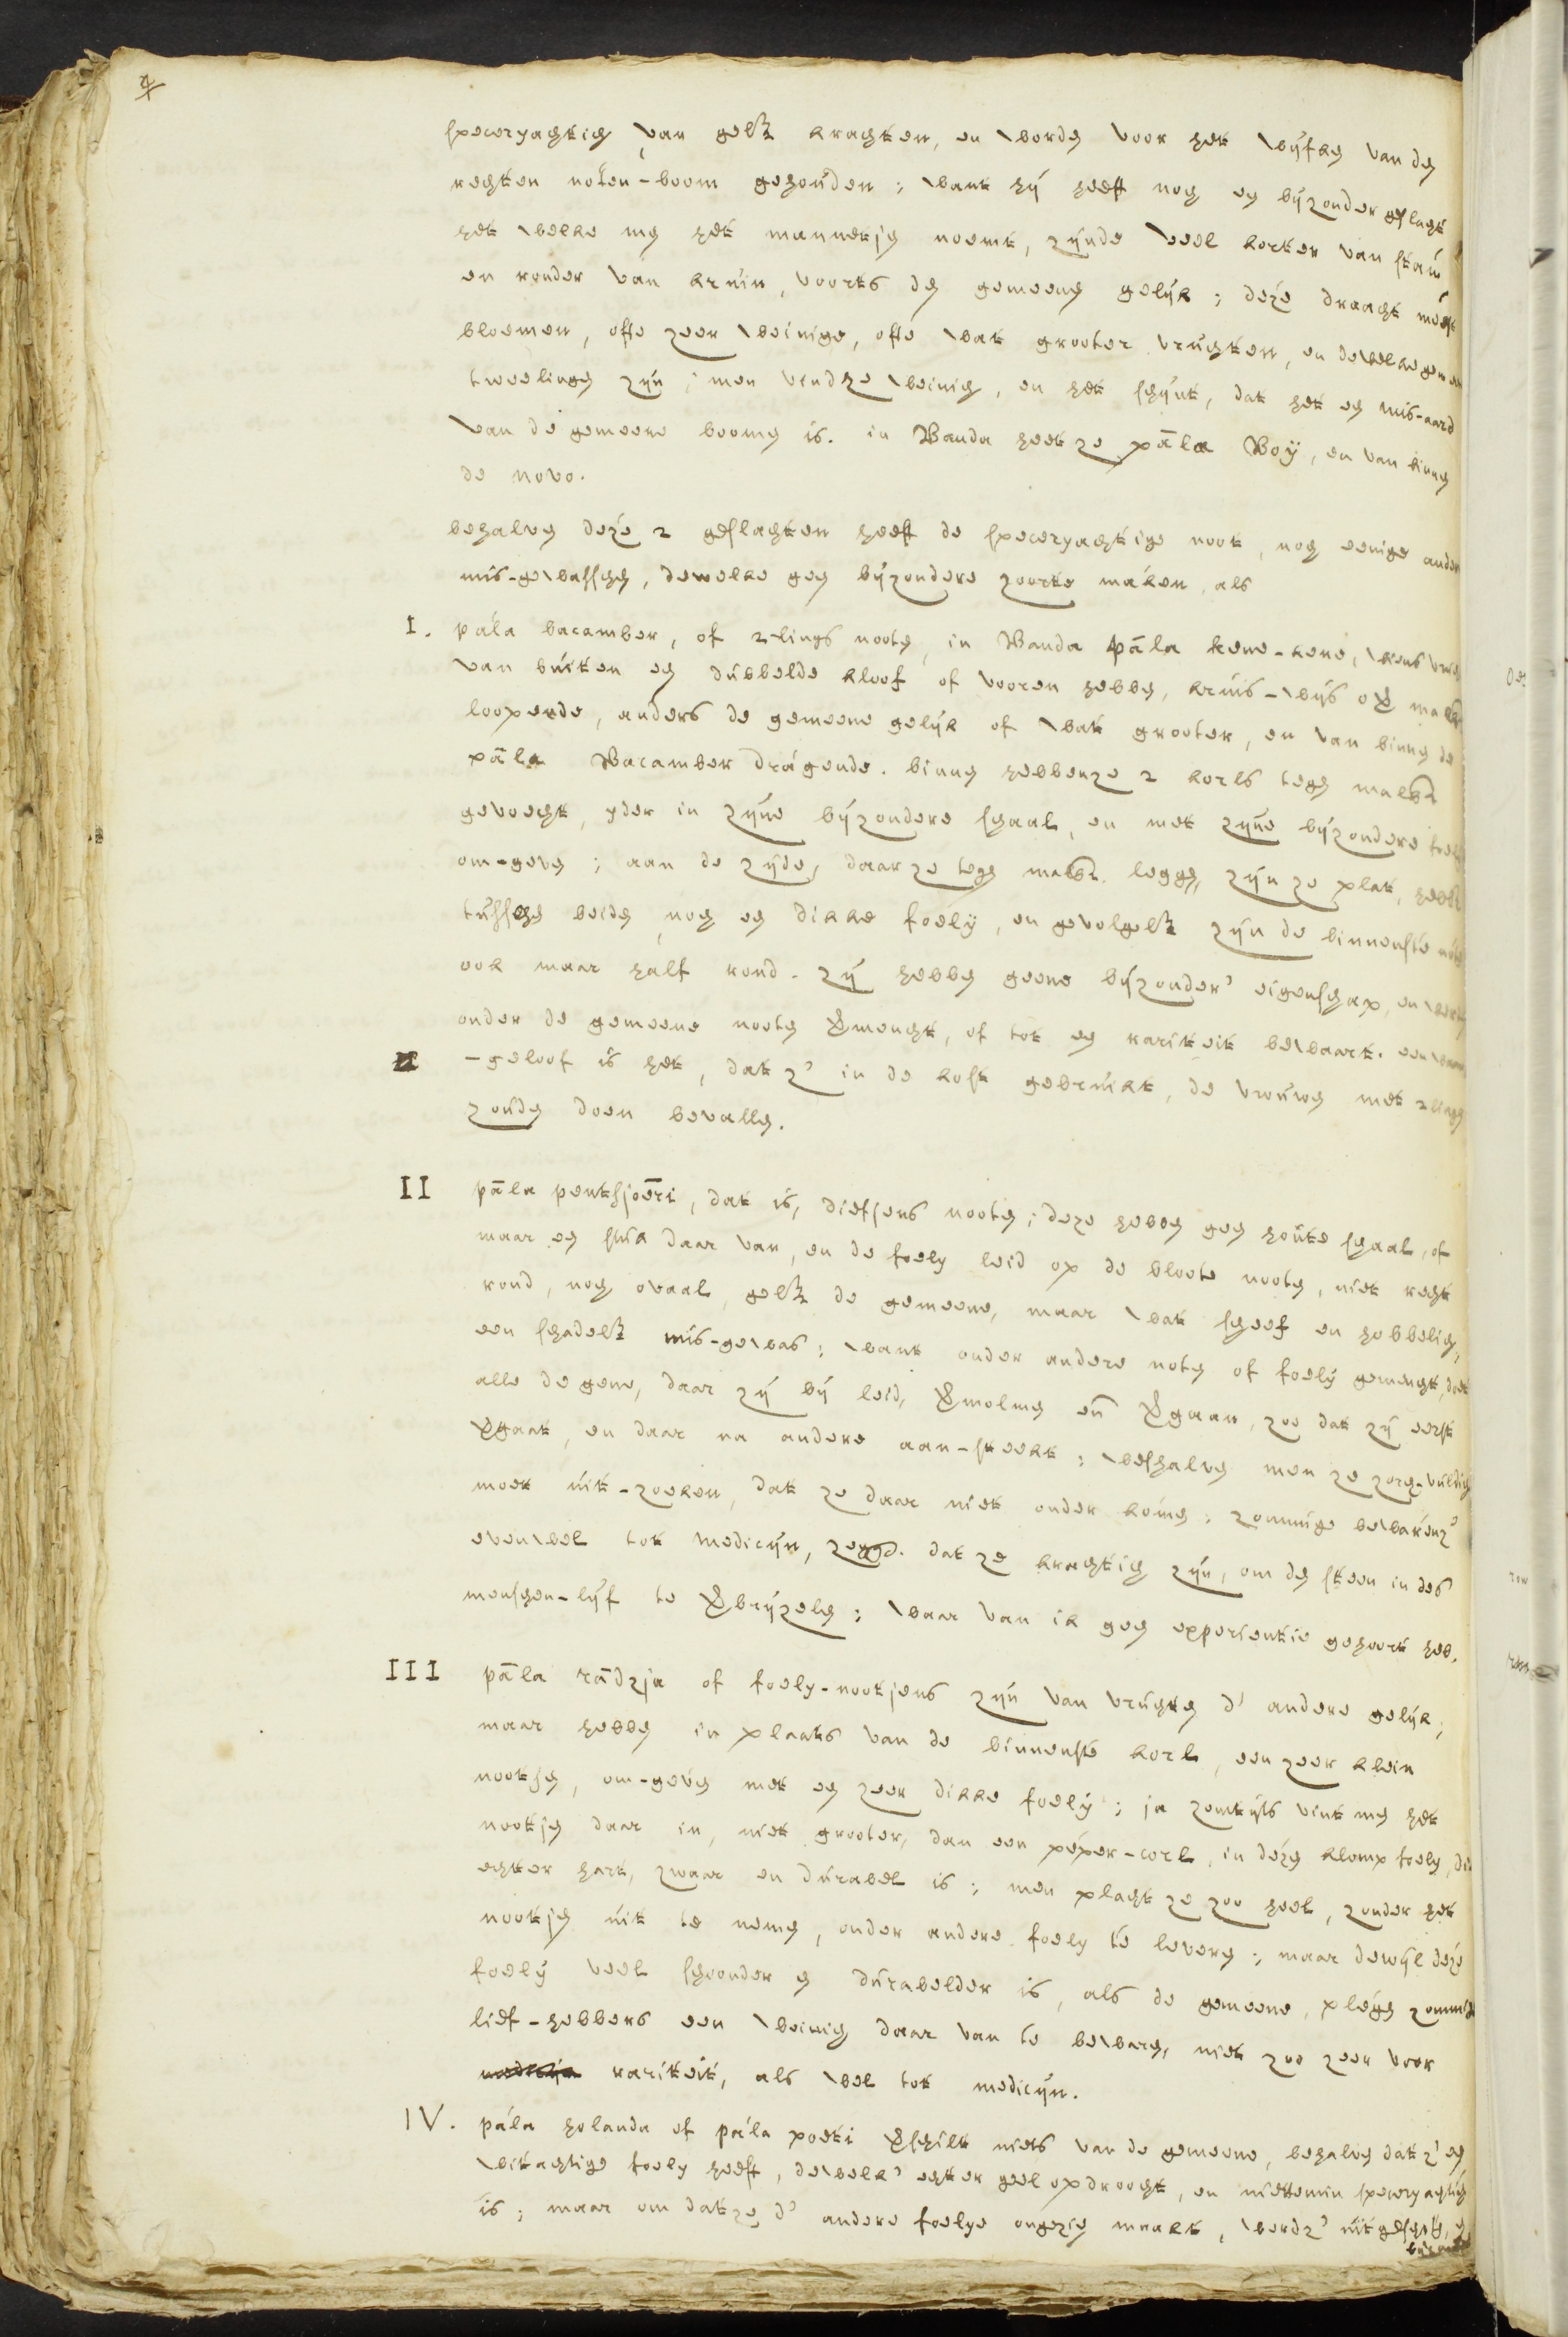 4
speceryachtich van gelk krachten, en worden voor het wijfken van den
rechten noten-boom gehouden; want hij heeft nog en bijzonder geslacht
het welke men het mannetjen noemt, zijnde veel korter van stam
en ronder van kruin, voorts den gemeenen gelijk; deze draacht meest
bloemen, ofte zeer weinige, ofte wat grooter vruchten, en dewelke gemeen
tweelingen zijn; men vindze weinich, en het schijnt, dat het en mis-aard
van de gemeene boomen is. in Banda heet ze pāla Boÿ, en van binnen
de novo.
behalven deze 2 geslachten heeft de speceryachtige noot, nog eenige andere
mis-gewasschen, dewelke gen bijzondere zoorte maken, als
I. pála bacamber, of 2-lings nooten, in Banda pāla kene-kene, wiens
van buiten en dubbelde kloof of vooren hebben, kruis-wijs over malk.
loopende, anders de gemeene gelijk of wat grooter, en van binnen de
pāla Bacamber drágende. binnen hebbenze 2 korls tegen malkr
gevoecht, yder in zijne bijzondere schaal, en met zijne bijzondere foely
om-geven; aan de zijde, daar ze tegen malkr. leggen, zijn ze plat, hebb
tusschen beiden nog en dikke foely, en gevolgelk zijn de binnenste noten
ook maar half rond. zij hebben geene bijzonder' eigenschap, en werden
onder de gemeene nooten vermengt, of tot en rariteit bewaart. een waan
-geloof is het, dat z' in de kost gebruikt, de vrouwen met 2lingen
zouden doen bevallen.
II pāla pentsjoēri, dat is, diefjens nooten; deze hebben gen houte schaal, of
maar en stuk daar van, en de foely leid op de bloote nooten, niet recht
rond, nog ovaal, gelk de gemeene, maar wat scheef en hobbelich,
een schadelk mis-gewas; want onder andere noten of foely gemengt, doet
alle de gene, daar zij bij leid, vermolmen en vergaan, zoo dat zij eerst
vergaat, en daar na andere aan-steekt; weshalven men ze zorg-vuldich
moet uit-zoeken, dat ze daar niet onder komen; zommige bewarenz'
evenwel tot medicijn, zeggd. dat ze krachtich zijn, om den steen in des
menschen-lijf te verbrijzelen; waar van ik gen experientie gehoort heb.
III pāla rādzja of foely-nootjens zijn van vruchten d' andere gelijk;
maar hebben in plaats van de binnenste korl, een zeer klein
nootjen, om-geven met en zeer dikke foely; ja zomtijts vint men het
nootjen daar in, niet grooter, dan een péper-corl, in dézen klomp foely, die
echter hart, zwaar en durabel is; men placht ze zoo heel, zonder het
nootjen uit te nemen, onder andere foely te leveren; maar dewijl deze
foely veel schoonder en durabelder is, als de gemeene, plégen zommige
lief-hebbers een weinich daar van te bewaren, niet zoo zeer voor
rariteit, als wel tot medicijn.
IV. pála holanda of pála poeti verschilt niets van de gemeene, behalven dat z' en
witachtige foely heeft, dewelk' echter geel opdroocht, en niettemin speceryachtich
is; maar om dat ze d' andere foelye ongezien maakt, werdz' uitgeschot, en